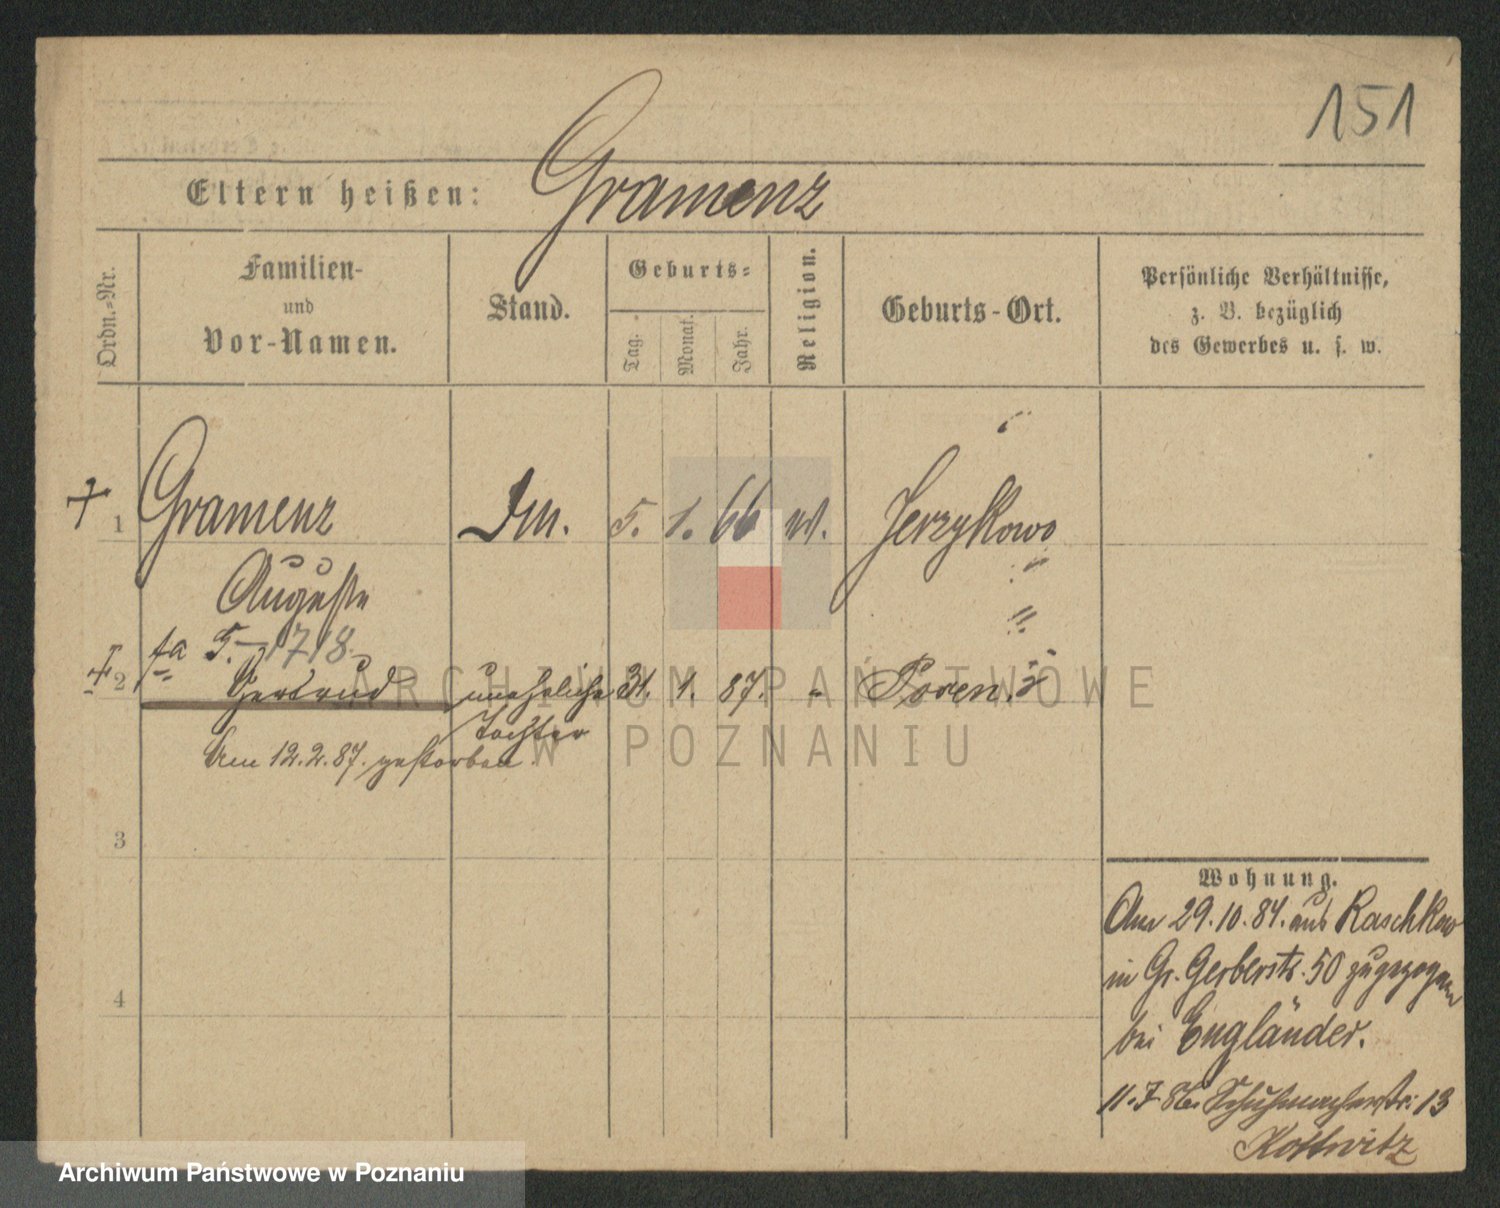 151
Eltern heißen: Gramenz
Ordn.-Nr.
Familien-
und
Vor-Namen.
Stand.
Geburts-
Tag.
Monat.
Jahr.
Religion.
Geburts-Ort.
Persönliche Verhältnisse,
z. B. bezüglich
des Gewerbes u. s. w.
1 Gramenz 5. 1. 66 Jerzykowo
Auguste
5.
2 Gertrud uneheliche 31. 1. 87. " Posen
Tochter
Am 12.2.87. gestorben
3
4
Wohnung.
Am 29.10.84. aus Raschkow
in Gr. Gerberstr. 50 zugezogen
bei Engländer.
11.7.86. Schuhmacherstr. 13
Kottwitz
ARCHIWUM PAŃSTWOWE
W POZNANIU
Archiwum Państwowe w Poznaniu